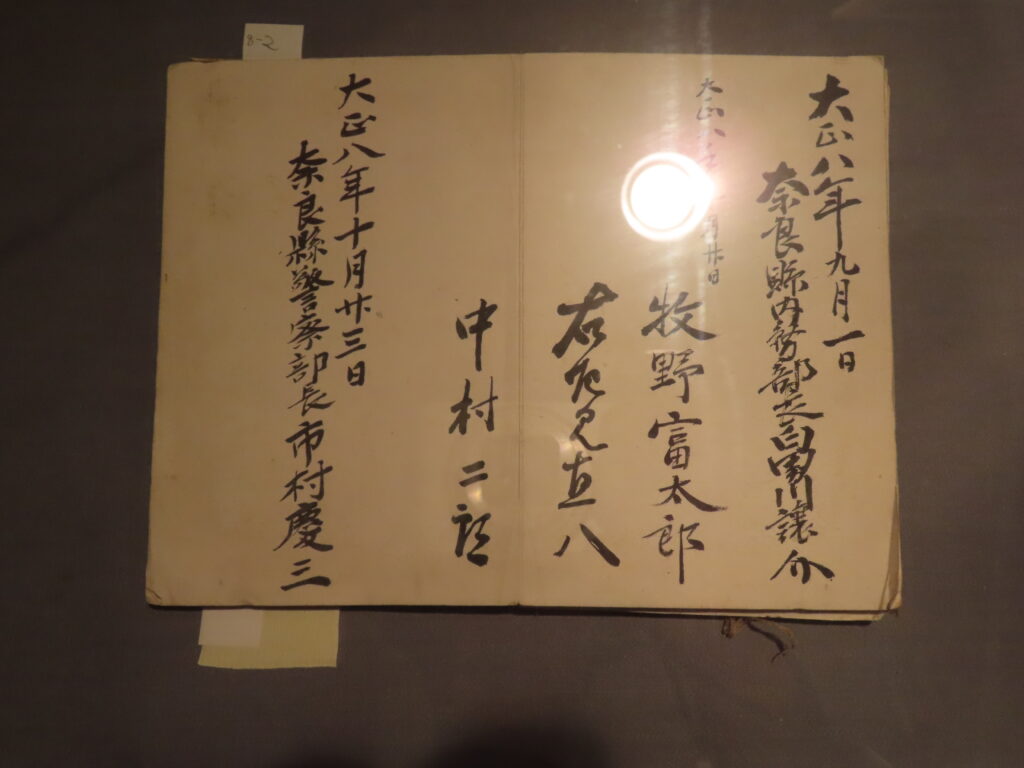 大正八年九月一日
奈良縣内務部長 川譲介
大正八 月廿日
牧野富太郎
直八
中村二郎
大正八年十月廿三日
奈良縣警察部長市村慶三
8-2